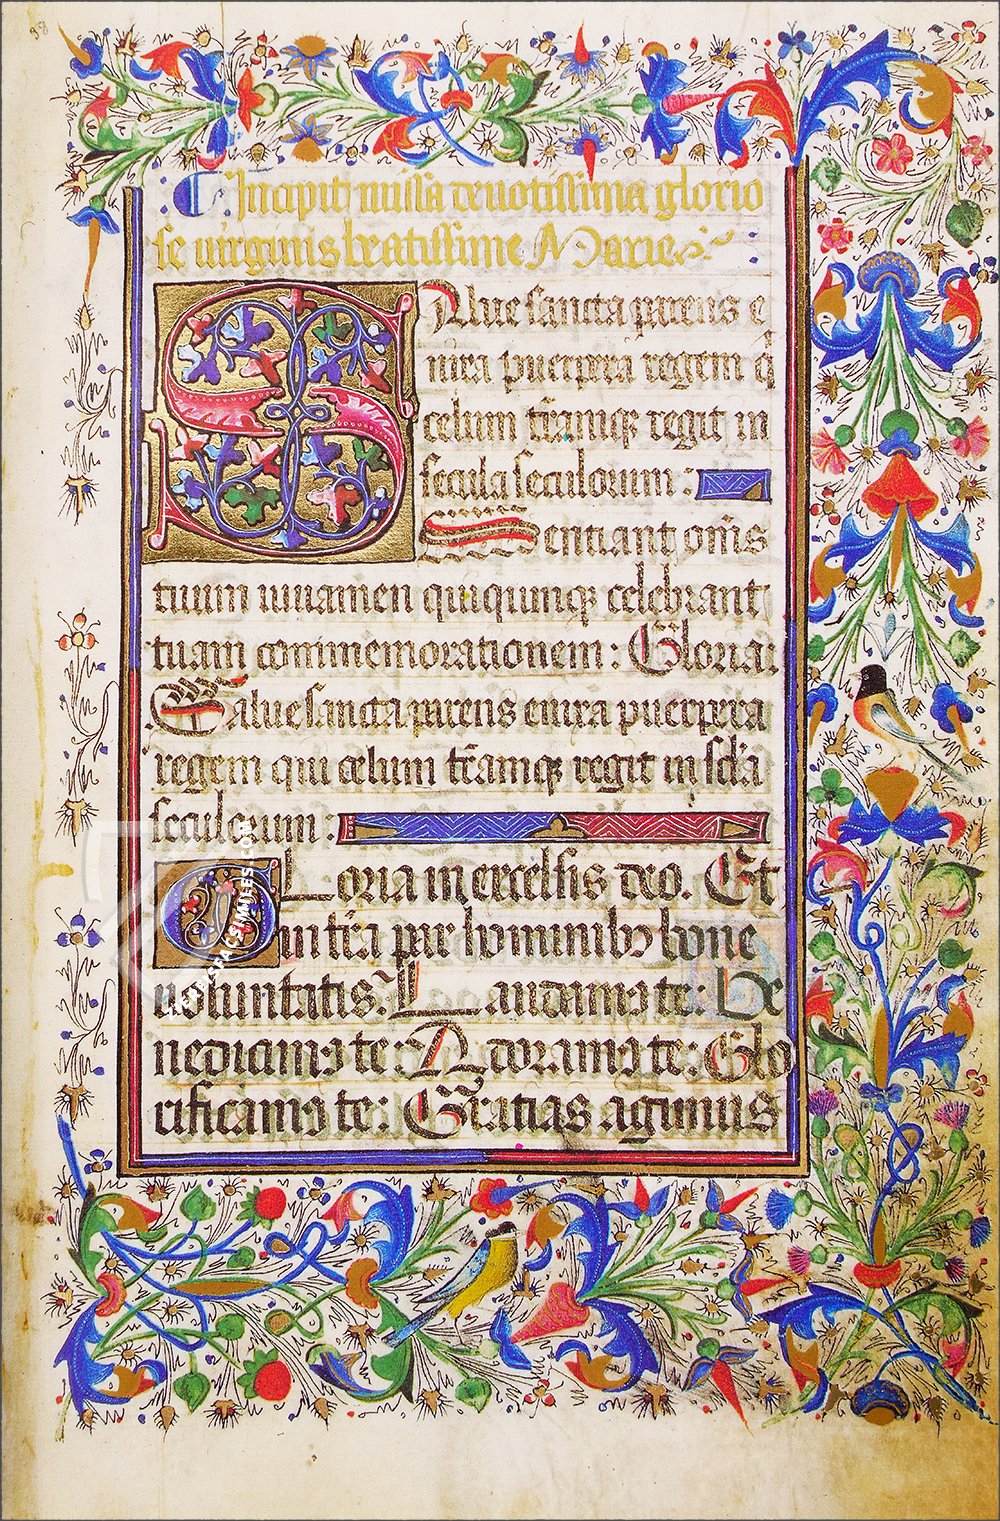 38
Incipit missa deuotissima glorio
se uirginis beatissime Marie
Salue sancta parens e
nixa puerpera regem q̇
celum tr̄amq; regit in
secula seculorum :
Sentiant om̄s
tuum iuuamen quiqunq; celebrant
tuam commemorationem : Gloria :
Salue sancta parens enixa puerpera
regem qui celum tr̄amq; regit in scl̄a
seculorum :
Gloria in excelsis deo. Et
in tr̄a pax hominibꝫ bone
uoluntatis. Laudamꝰ te : Be
nedicamꝰ te Adoramꝰ te : Glo
rificamꝰ te : Gratias agimus
FACSIMILES.COM